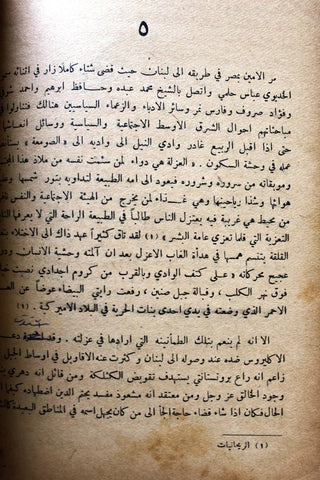 ٥
مر الامين بمصر في طريقه الى لبنان حيث قضى شتاء كاملا زار في اثنائه سمو
الخديوي عباس حلمي واتصل بالشيخ محمد عبده وحافظ ابرهيم واحمد شوقي
وفؤاد صروف وفارس نمر وسائر الادباء والزعماء السياسيين هنالك فتناولوا في
مباحثاتهم احوال الشرق الاوسط الاجتماعية والسياسية ووسائل
حتى اذا اقبل الربيع غادر وادي النيل الى واديه الى « الصومعة »
عمله في وحشة السكون . « العزلة هي دواء لمن سئمت نفسه من ملاذ هذا
وموبقاته من سروره وشروره فيعود الى امه الطبيعة لتداويه بنور شمسها وطيب
هوائها وشذا رياحينها وهي غذاء لمن يخرج من الهيئة الاجتماعية والنفس
من محيط هي غريبة فيه يعتزل الناس طالباً في الطبيعة الراحة التي لا يعرفها
التعزية التي قلما تعزي عامة البشر » (١) لقد تاق كثيراً عهد ذاك الى الاختلاء
القلقة بتنسم همسها في هدأة الغاب الاعزل بعد ان آلمته وحشة الانسان
عجيج محركاته « على كتف الوادي وبالقرب من كروم اجدادي نصبت
فوق نهر الكلب ، وقبالة جبل صنين ، رفعت رايتي البيضاء عوضاً عن
الاحمر الذي وضعته في يدي احدى بنات الحرية في البلاد الاميركية . (١)
الا انه لم ينعم بتلك الطمأنينة التي ارادها في عزلته . فقد
الاكليروس ضده عند وصوله الى لبنان وكثرت عنه الاقاويل في اوساط الجبل
زاعم انه راع بروتستانتي يستهدف تقويض الكثلكة ومن قائل انه دهري
وجود الخالق عز وجل ومن معتقد انه مشعوذ مفسد يحتم الدين اضطهاده كيفما
الحال فكان اذا شاء قضاء حاجة الجأ الى من كان يجهل اسمه في المناطق البعيدة
(١) الريحانيات